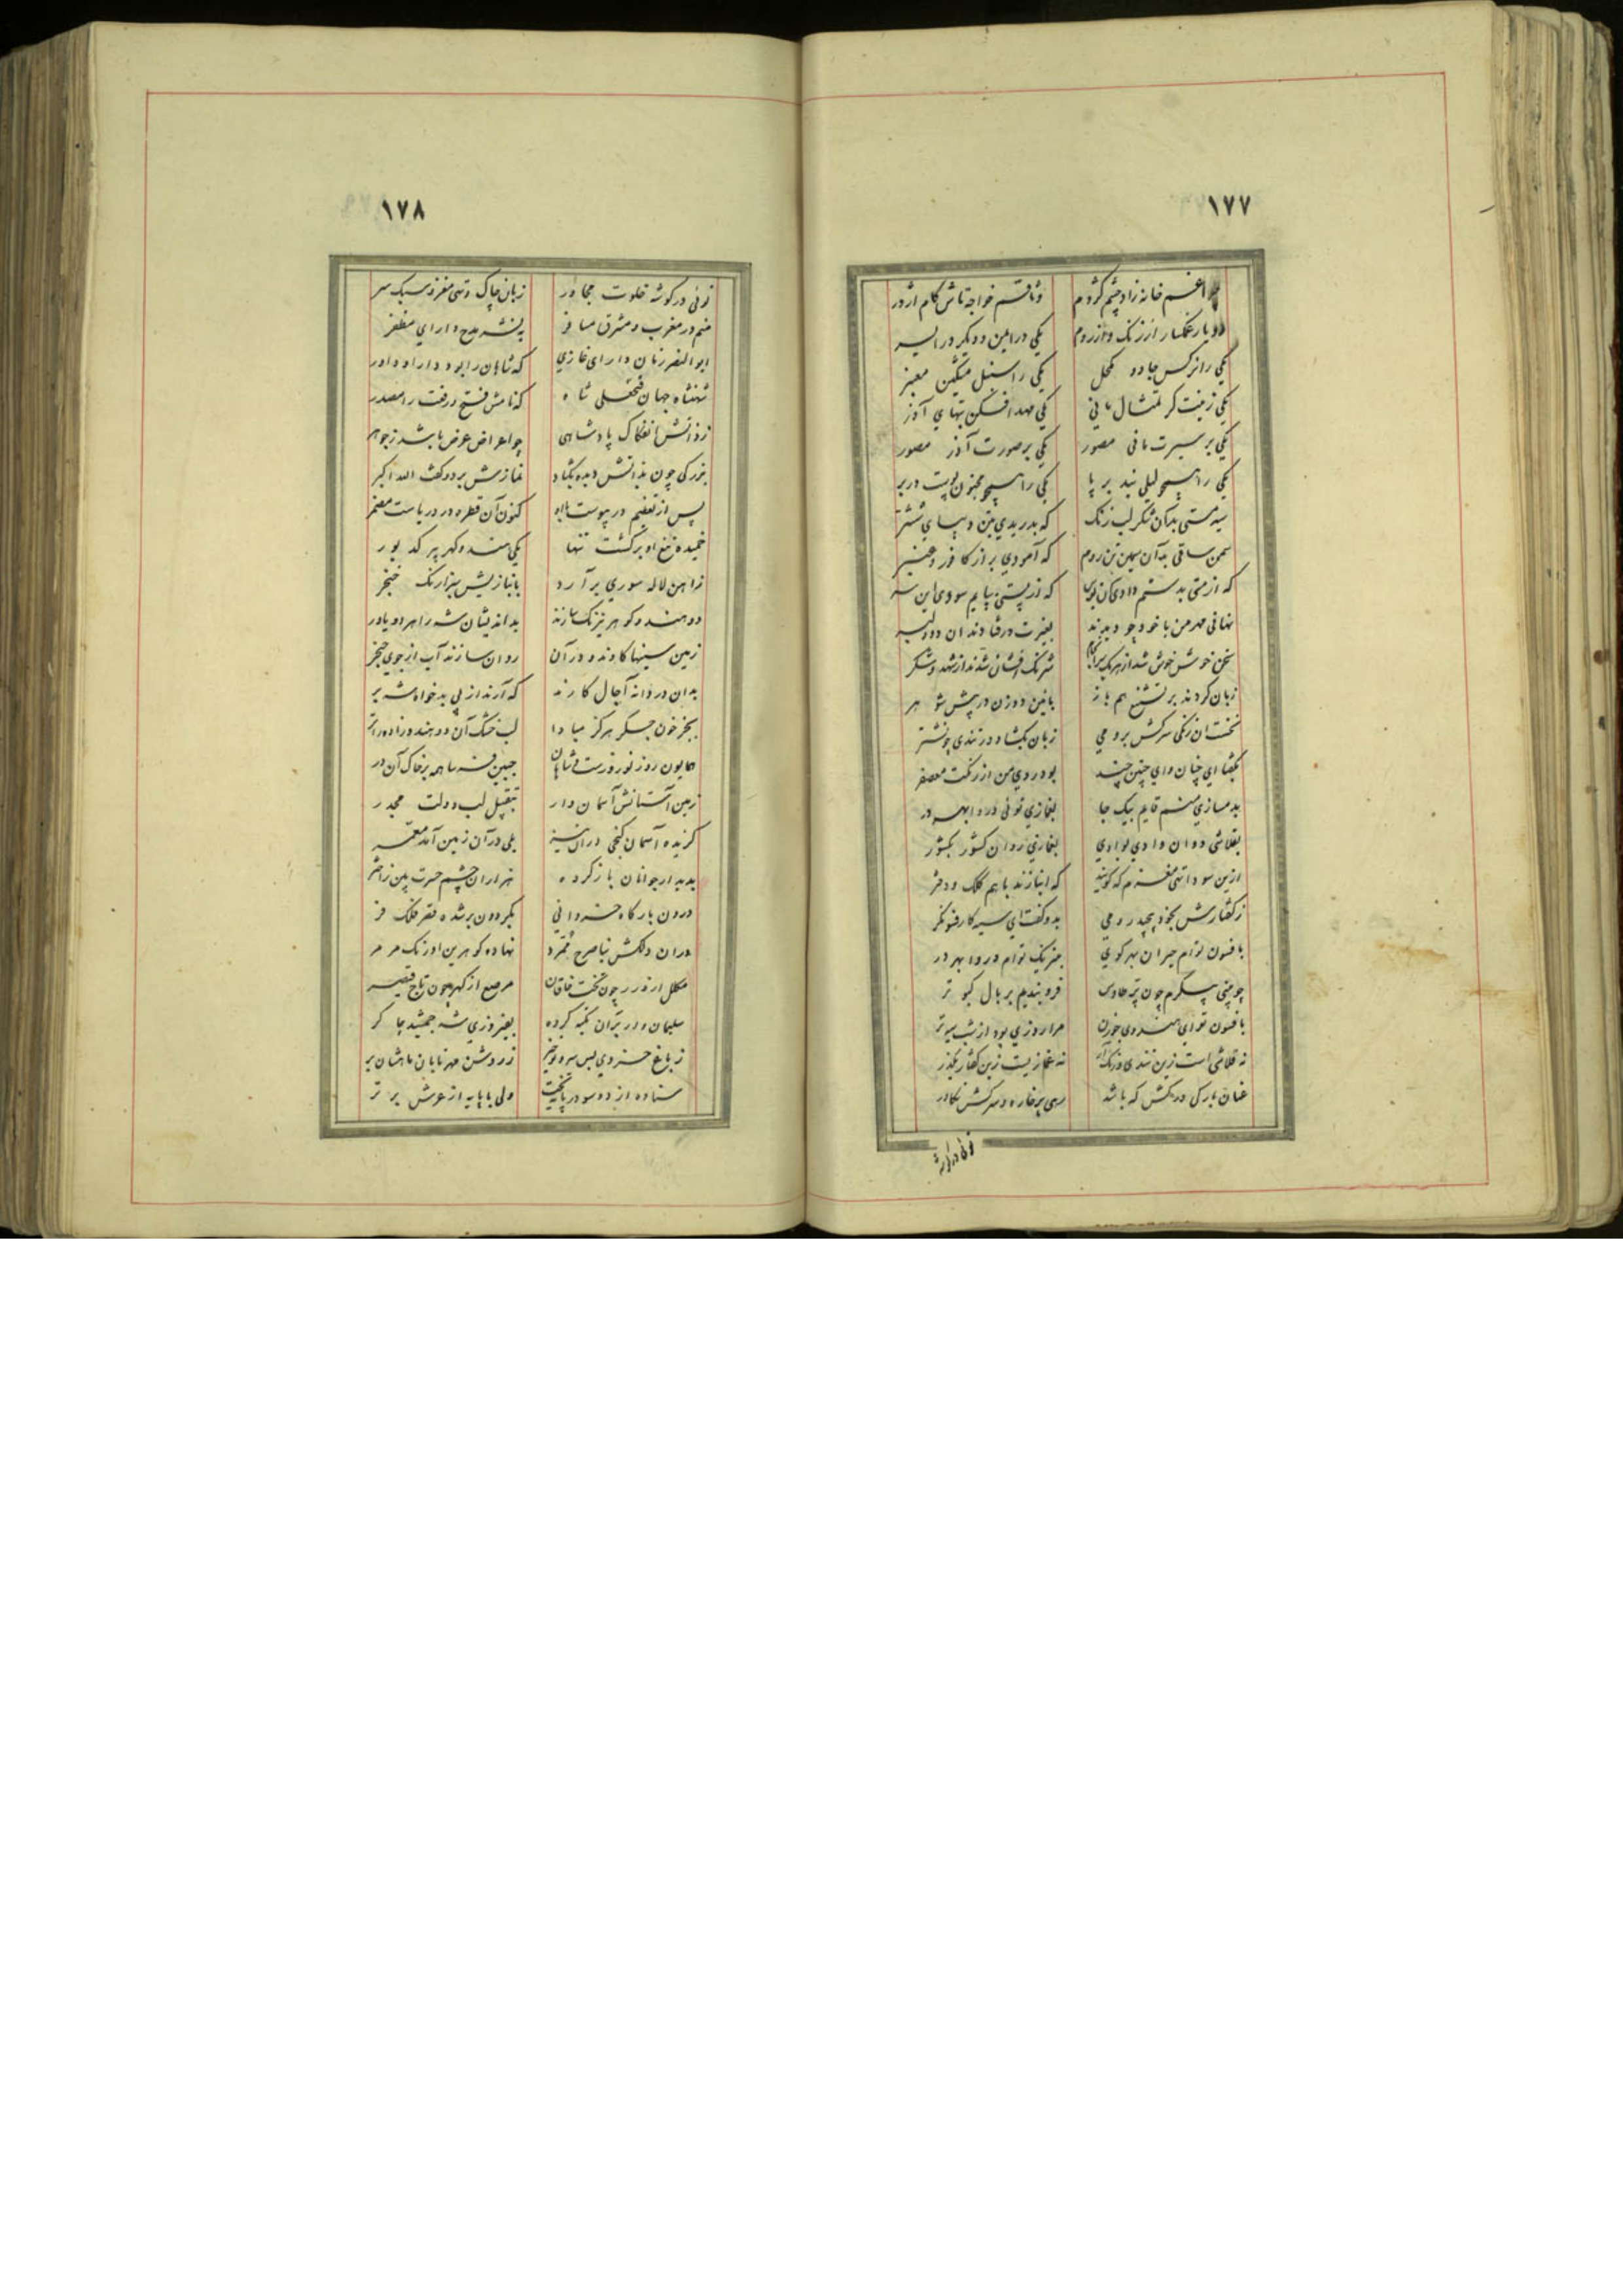 ۱۷۷
خانه زاد چشم کژدم وثاقم خواجه تاش کام اژدر
دو یار غمگسار از زنک و از روم یکی در ایمن و دیگر در ایسر
یکی را نرکس جادو مکحل یکی را سنبل مشکین معنبر
یکی زینت کر تمثال مانی یکی آذر
یکی بر سیرت مانی مصور یکی بر صورت آذر مصور
یکی را همچو لیلی بند بر پا یکی را همچو مجنون پوست در بر
سیه مستی بدان شکر لب زنک که بدریدی بتن دیبای ششتر
سمن ساقی بدآن سیمین تن روم که آمودی بر از کافور و عنبر
که از مستی بدستم دادی آن که از پستی بپایم سودی این سر
نهانی مهر من با خود چو دیدند بغیرت درفتادند آن دو دلبر
سخن خوش خوش شد از شرنک افشان شدند از شهد و شکر
زبان کردند بر تشنیع هم باز
نخست آن زنکی سرکش برومی زبان بکشاد در تندی چو نشتر
بگفتا ای چنان و ای چنین چند بود روی من از رنگت معصفر
منم قایم بیک جا بغمازی توئی در در
بقلاشی دوان وادی بوادی بغمازی روان کشور بکشور
ازین سودا تهی مغزم که گویند که انبازند با هم کلک و دفتر
ز گفتارش بخود پیچید رومی بدو گفت ای سیه کار فسونگر
با فسون توام حیران بهر کوی بنیرنک توام در وا بهر در
چو بینی پیکرم چون پر حادی فرو بندیم بر بال کبوتر
با فسون تو ای هندوی مرا روزی بود از شب سیه تر
نه قلاشی است زین تندی نه غمازیست زین گفتار بگذر
عنان بارکی درکش که باشد رهی پر خاره و سرکش تکاور
توئی در گوشه
۱۷۸
توئی در گوشه خلوت مجاور زبان چاک و تهی مغز و سبک سر
منم در مغرب و مشرق مسافر مدح دارای مظفر
ابوالنصر زمان دارای غازی که شاهان را بود دارا و داور
شهنشاه جهان فتحعلی شاه که نامش فتح و رفعت را مصدر
ز ذاتش انفکاک پادشاهی چو اعراض عرض باشد ز جوهر
بزرکی چون بذاتش دیده بگشاد نمازش برد و گفت الله اکبر
پس از تعظیم در پیوست با او کنون آن قطره در دریاست مضمر
خمیده تیغ او برگشت تنها یکی هندو گهر پر
ز آهن لاله سوری بر آرد بانبازیش نیزارنک خنجر
دو هندو گوهر نیرنک سازند بد اندیشان شه را هر دو یاور
زمین سینها کاوند و در آن روان سازند آب از جوی خنجر
بدان در دانه آجال کارند که آرند از پی بدخواه شه بر
بجز خون جگر هرگز مبادا لب خشک آن دو هندوزاده را تر
همایون روز نوروزست و شاهان جبین فرسا همه بر خاک آن در
زمین آستانش آسمان وار بتقبیل لب دولت مجدر
گزیده آسمان کنجی در آن نیز بلی در آن زمین آمد
بدیدار جوانان باز کرده هزاران چشم حسرت بین ز اختر
درون بارگاه خسروانی بگردون برشده قصر فلک فر
در آن دلکش بنا صرح ممرد نهاده گوهرین اورنک مرمر
مکلل از درر چون تخت خاقان مرصع از گهر چون تاج قیصر
سلیمان وار بر آن تکیه کرده بفیروزی شه جمشید چاکر
ز باغ خسروی بس سرو ز رو شن مهر تابان ماهشان بر
ستاده از دو سو در پای تخت ولی با پایه از عرش برتر